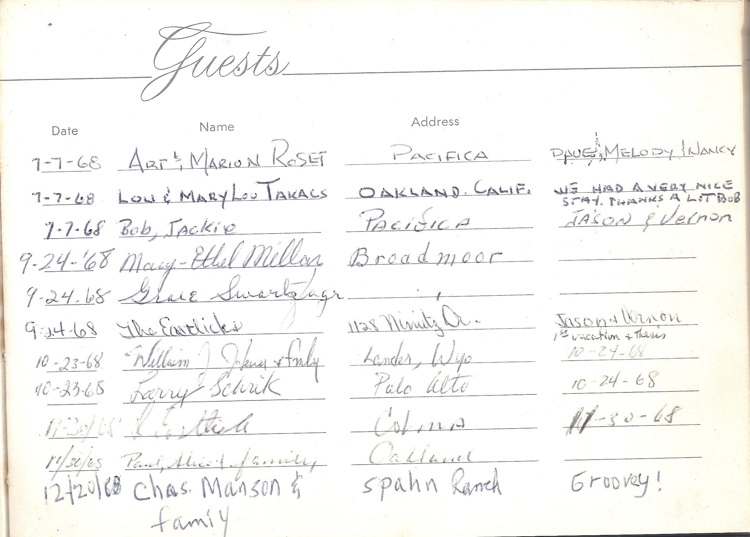 Guests
Date Name Address
7-7-68 ART & MARION ROSET PACIFICA DAVE, MELODY, NANCY
7-7-68 LOU & MARYLOU TAKACS OAKLAND. CALIF. WE HAD A VERY NICE STAY. THANKS A LOT BOB
7-7-68 Bob, Jackie PACIFICA JASON & Vernon
9-24-'68 Mary-Ethel Millar Broadmoor
9-24-68 Grace "
9-24-68 The Eastlicks 1128 Nimitz Dr. Jason & Vernon
1st vacation & thesis
10-23-68 William J. & Fmly Lander, Wyo 10-24-68
10-23-68 Larry Schrik Palo Alto 10-24-68
11-30/68 Colma 11-30-68
11/30/68 Paul, & family Oakland
12/20/68 Chas. Manson & Spahn Ranch Groovey!
famiy